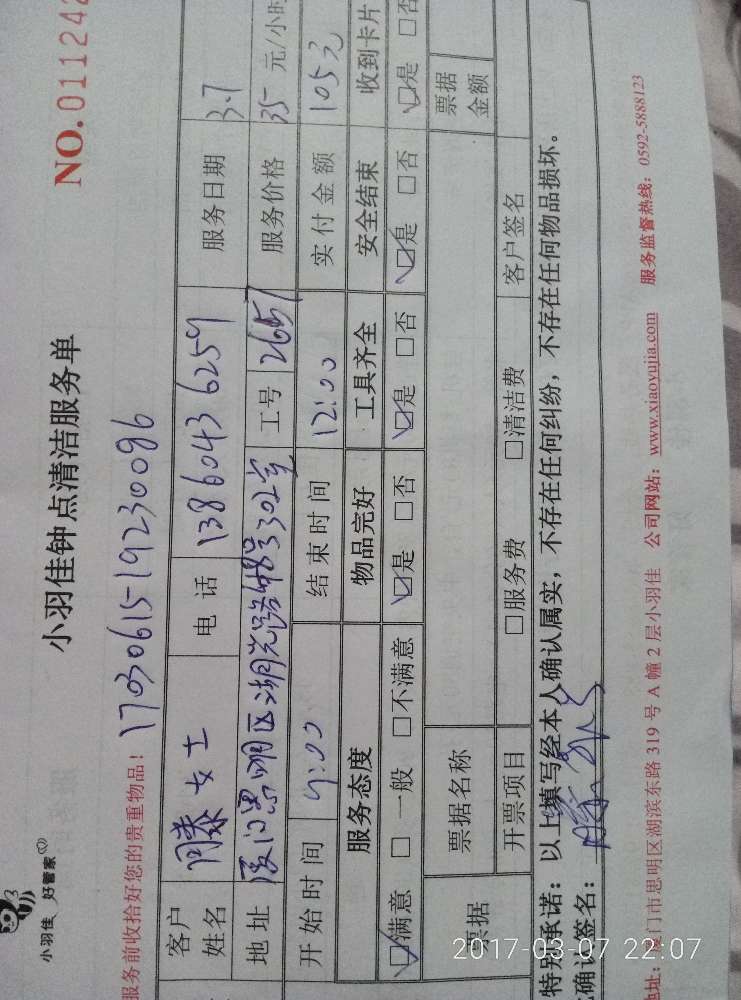 小羽佳 好管家
小羽佳钟点清洁服务单
NO.011242
服务前收拾好您的贵重物品！ 1703061519230096
客户姓名 滕女士 电话 13860436259 服务日期 3.7
地址 厦门思明区湖光路48号302室 工号 2657 服务价格 35 元/小时
开始时间 9:00 结束时间 12:00 实付金额 105元
服务态度 物品完好 工具齐全 安全结束 收到卡片
☑满意 □一般 □不满意 ☑是 □否 ☑是 □否 ☑是 □否 ☑是 □否
票据 票据名称 票据金额
开票项目 □服务费 □清洁费 客户签名
特别承诺：以上填写经本人确认属实，不存在任何纠纷，不存在任何物品损坏。
确认签名：
地址：厦门市思明区湖滨东路 319 号 A 幢 2 层小羽佳 公司网站：www.xiaoyujia.com 服务监督热线：0592-5888123
2017-03-07 22:07